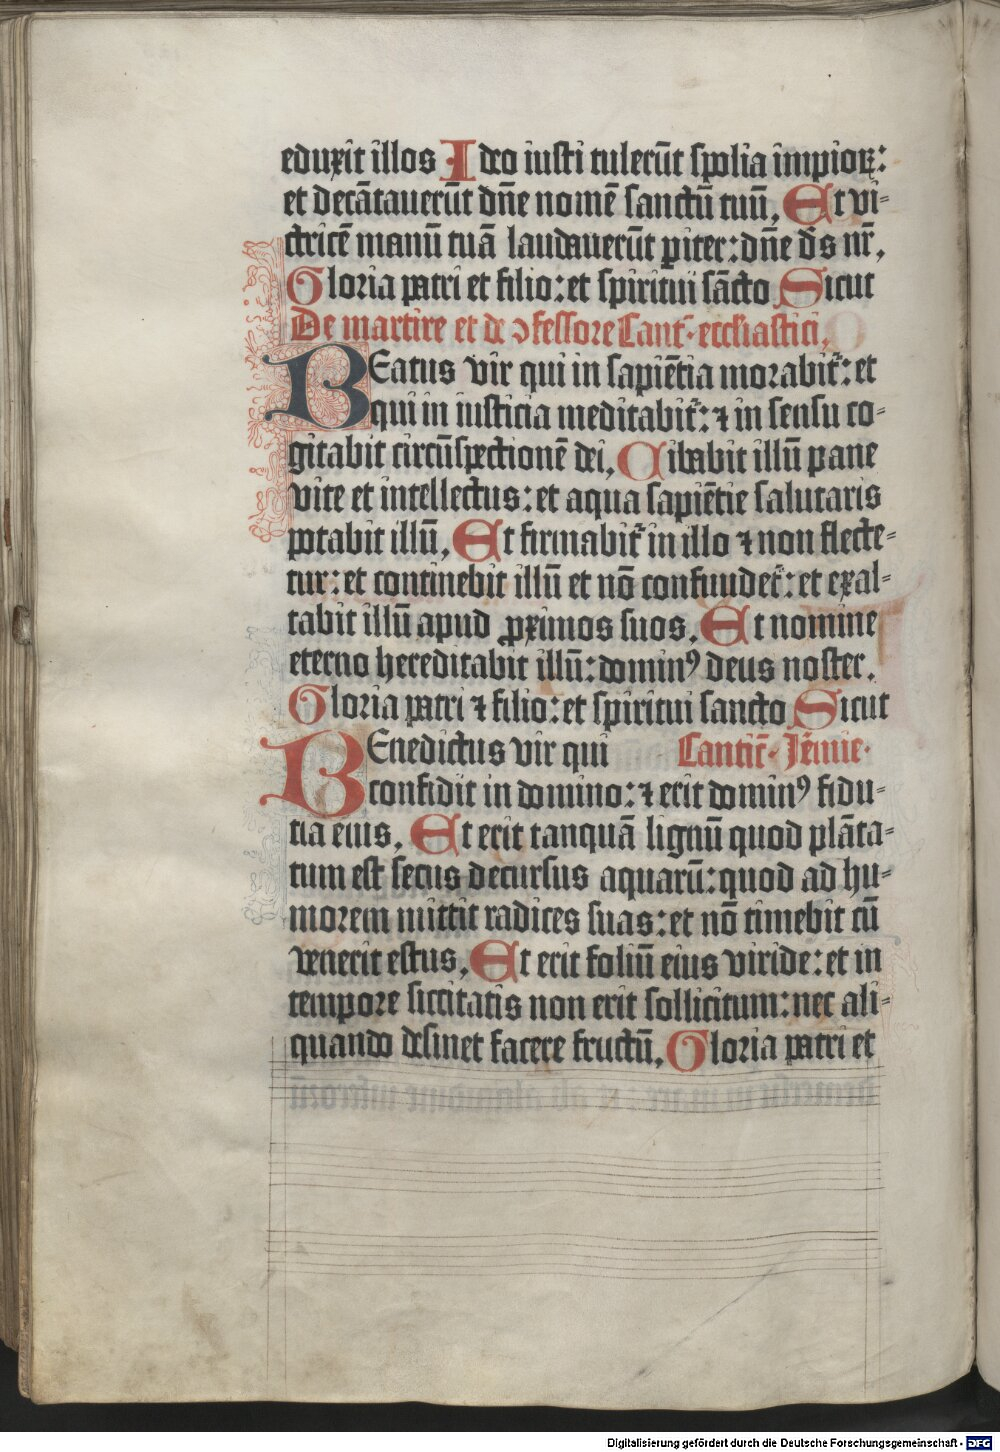 eduxit illos Ideo iusti tulerūt spolia impioꝝ:
et decātauerūt dn̄e nomē sanctū tuū, Et vi-
ctricē manū tuā laudauerūt ꝑiter: dn̄e ds̄ nr̄,
Gloria patri et filio: et spiritui sācto Sicut
De martire et de ꝯfessore Cant̄. ecclīastici,
BEatus vir qui in sapiētia morabit̄: et
qui in iusticia meditabit̄: ⁊ in sensu co-
gitabit circūspectionē dei, Cibabit illū pane
vite et intellectus: et aqua sapiētie salutaris
potabit illū, Et firmabit̄ in illo ⁊ non flecte-
tur: et continebit illū et nō confundet̄: et exal-
tabit illū apud ꝓximos suos. Et nomine
eterno hereditabit illū: dominꝰ deus noster.
Gloria patri ⁊ filio: et spiritui sancto Sicut
BEnedictus vir qui Canticū. Jēmie.
confidit in domino: ⁊ erit dominꝰ fidu-
tia eius, Et erit tanquā lignū quod plāta-
tum est secus decursus aquarū: quod ad hu-
morem mittit radices suas: et nō timebit cū
venerit estus, Et erit foliū eius viride: et in
tempore siccitatis non erit sollicitum: nec ali-
quando desinet facere fructū, Gloria patri et
Digitalisierung gefördert durch die Deutsche Forschungsgemeinschaft - DFG